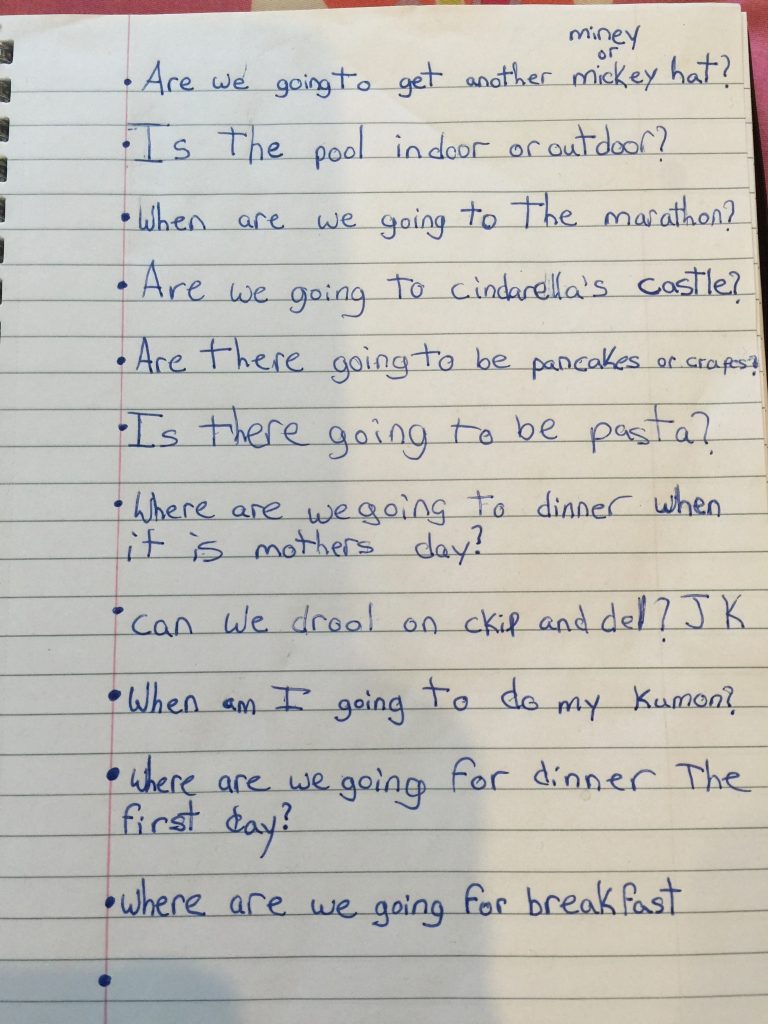 miney
or
• Are we going to get another mickey hat?
• Is the pool indoor or outdoor?
• When are we going to the marathon?
• Are we going to cindarella's castle?
• Are there going to be pancakes or crapes?
• Is there going to be pasta?
• Where are we going to dinner when
it is mothers day?
• can we drool on ckip and del? JK
• When am I going to do my kumon?
• where are we going for dinner The
first day?
• where are we going for breakfast
•